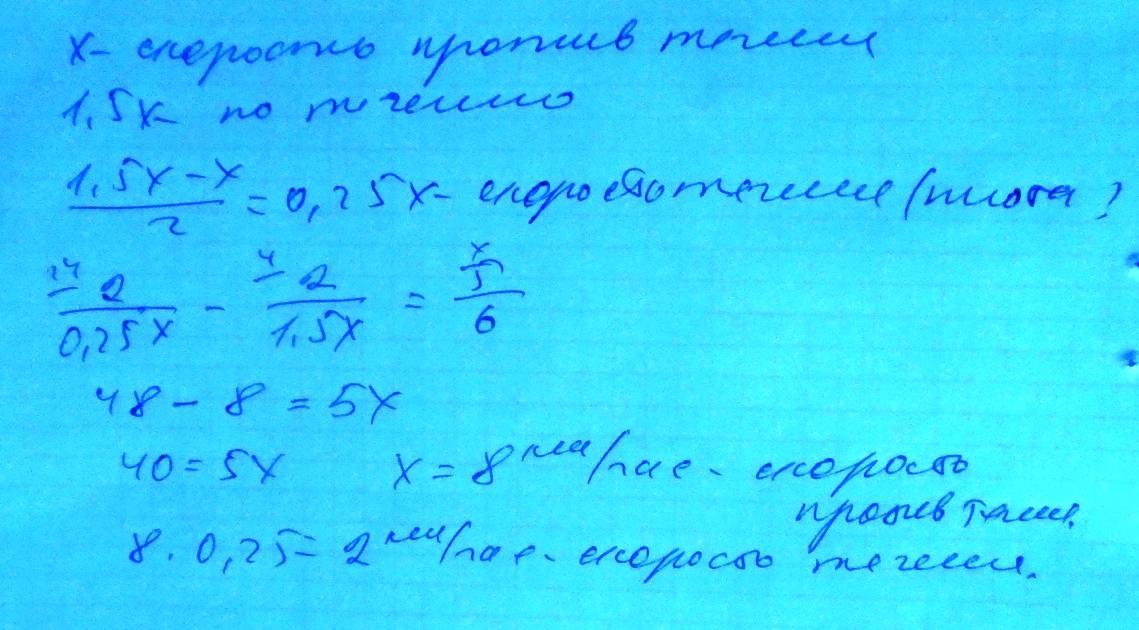 x - скорость против течения
1,5x - по течению
(1,5x - x)/2 = 0,25x - скорость течения (плота)
24 2/0,25x - 4 2/1,5x = x 5/6
48 - 8 = 5x
40 = 5x x = 8 км/час - скорость
против течен.
8 · 0,25 = 2 км/час - скорость течения.